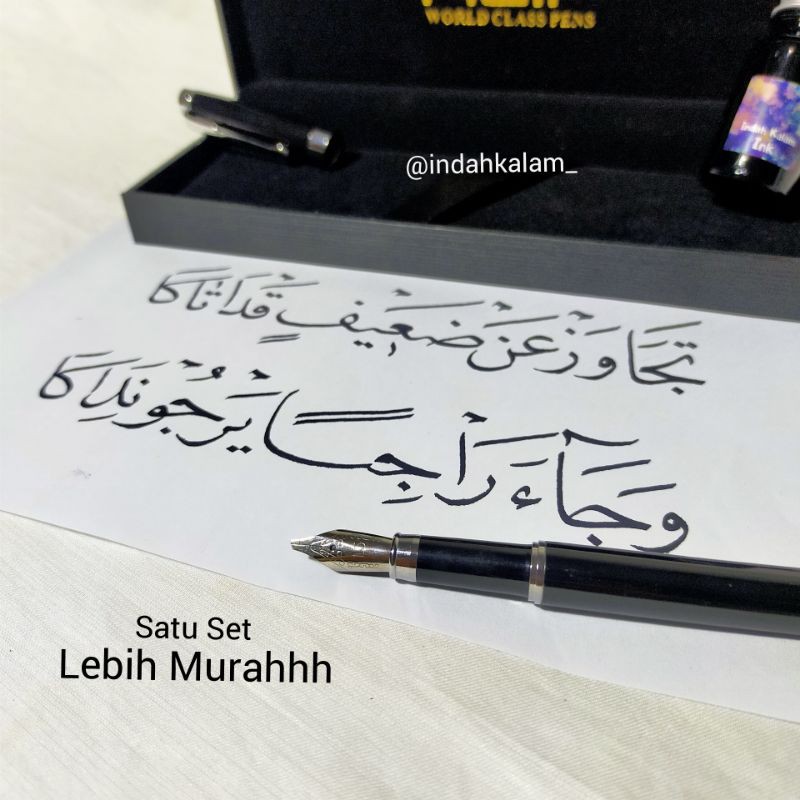 WORLD CLASS PENS
@indahkalam_
Indah Kalam
Ink
تَجَاوَزْ عَنْ ضَعِيْفٍ قَدْ اَتَاكَا
وَجَآءَ رَاجِيًا يَرْجُوْ نِدَاكَا
Satu Set
Lebih Murahhh